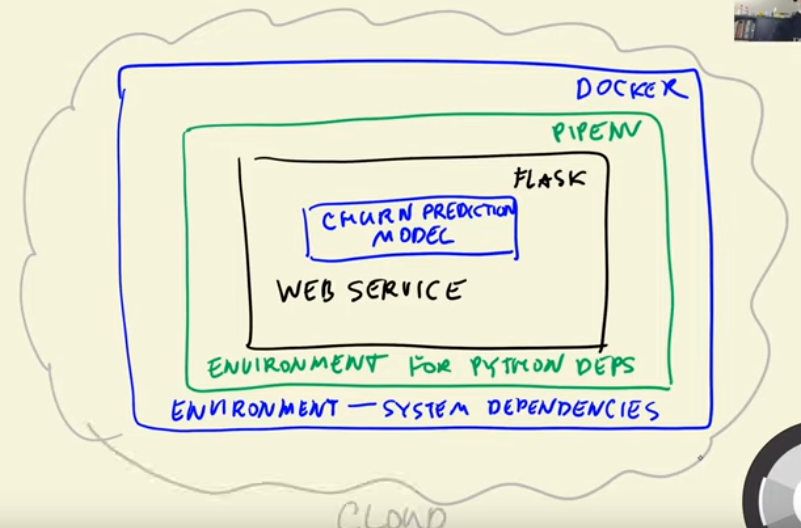 DOCKER
PIPENV
FLASK
CHURN PREDICTION
MODEL
WEB SERVICE
ENVIRONMENT FOR PYTHON DEPS
ENVIRONMENT — SYSTEM DEPENDENCIES
CLOUD